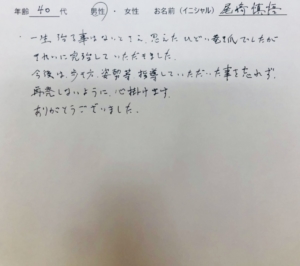 年齢 40 代 男性 ・ 女性 お名前(イニシャル) 尾崎 慎悟
・一生治る事はないとさえ思えたひどい巻き爪でしたが
きれいに完治していただきました。
今後は、歩き方、姿勢等指導していただいた事を忘れず、
再発しないように心掛けます。
ありがとうございました。